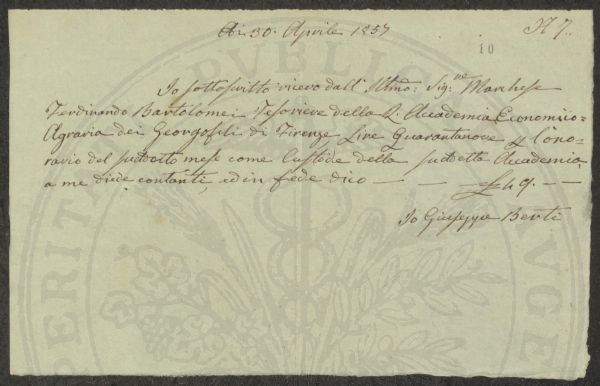 Ai 30. Aprile 1857
N 7.
10
Io sottoscritto ricevo dall' Illmo: Sig:re Marchese
Ferdinando Bartolomei Tesoriere della R. Accademia Economico=
Agraria dei Georgofili di Firenze Lire Quarantanove p l'ono=
rario del suddetto mese come Custode della suddetta Accademia,
a me diede contanti ed in fede dico — — £ 49. — —
Io Giuseppe Berti
PERITA
PUBLICO
AUGE